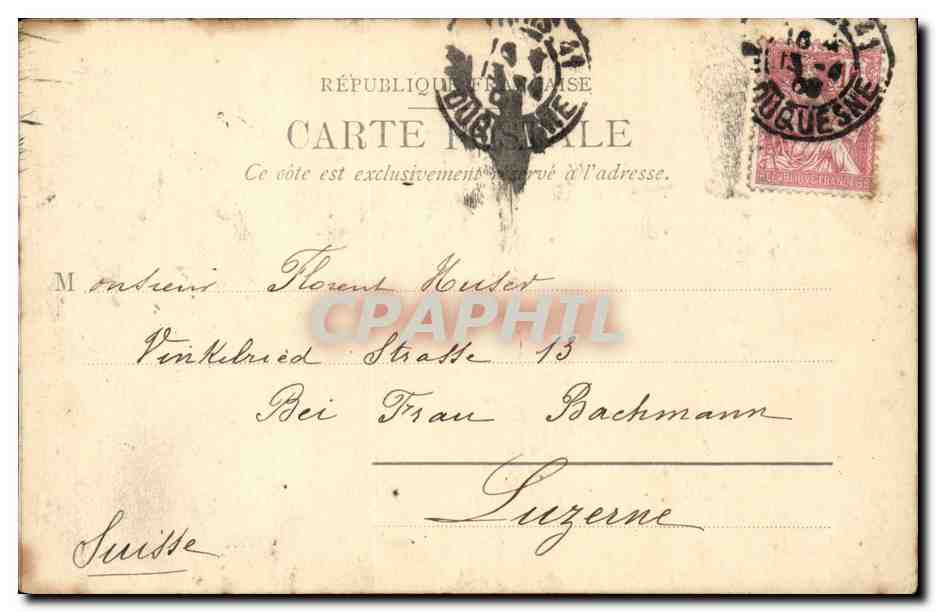 RÉPUBLIQUE FRANÇAISE
CARTE POSTALE
Ce côté est exclusivement réservé à l'adresse.
DUQUESNE
DUQUESNE
REPUBLIQUE FRANÇAISE
Monsieur Florent Huser
Vinkelried Strasse 13
Bei Frau Bachmann
Luzerne
Suisse
CPAPHIL